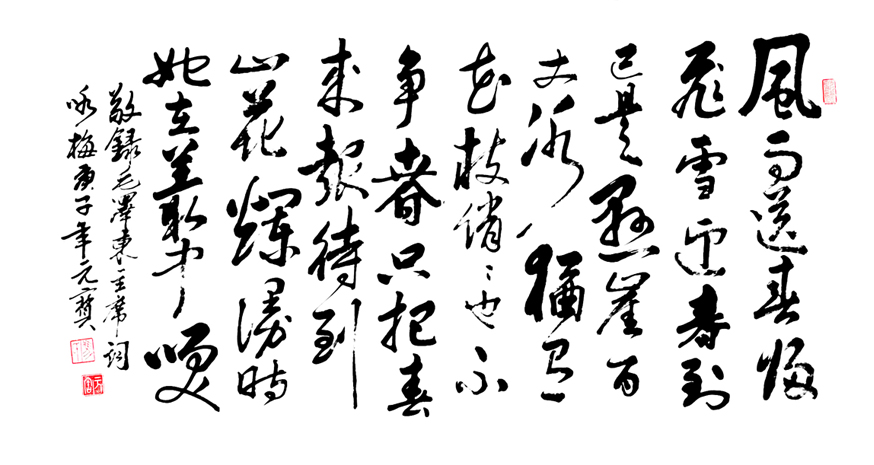 風雨送春归
飛雪迎春到
已是懸崖百
丈冰猶有
花枝俏〻也不
争春只把春
来報待到
山花爛漫時
她在叢中笑
敬録毛澤東主席詞
咏梅庚子年元寶